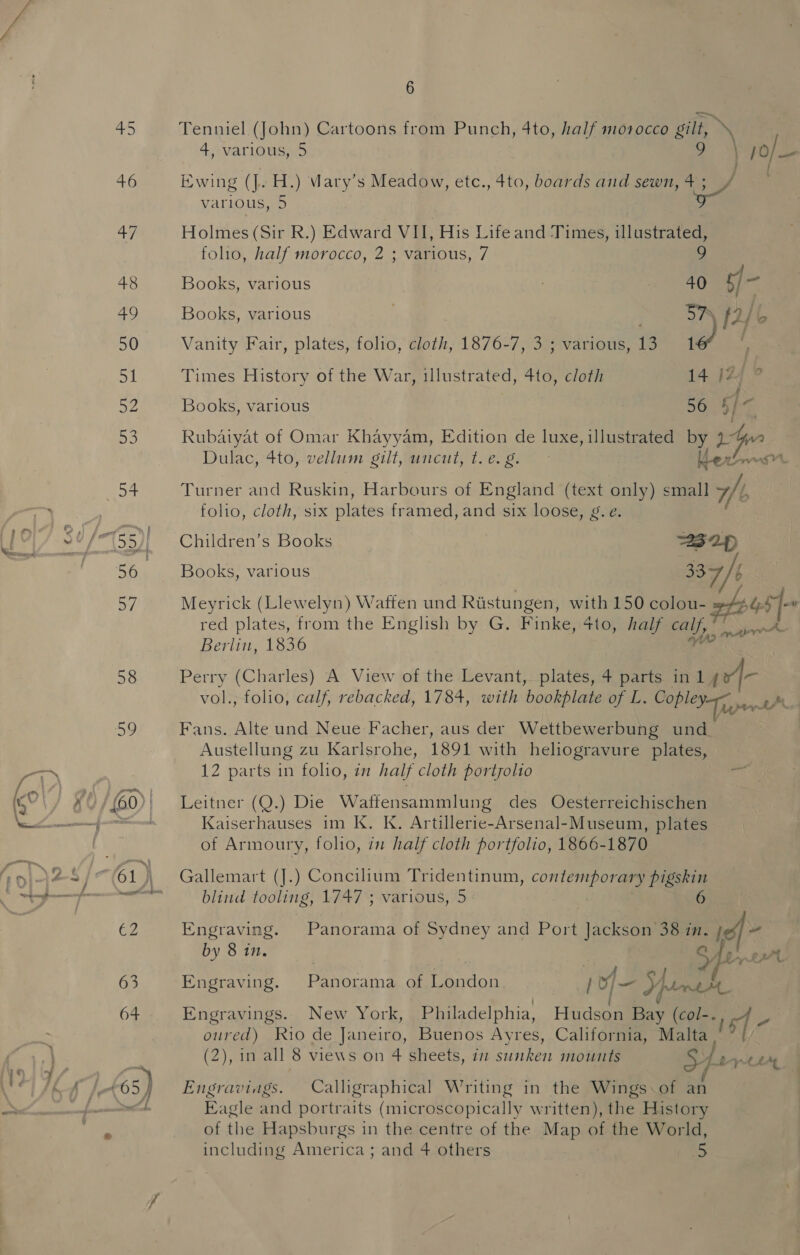 6
45 Tenniel (John) Cartoons from Punch, 4to, half morocco gilt,
4, various, 5 9 10/-
46 Ewing (J. H.) Mary's Meadow, etc., 4to, boards and sewn, 4 ;
various, 5 9
47 Holmes (Sir R.) Edward VII, His Life and Times, illustrated,
folio, half morocco, 2 ; various, 7 9
48 Books, various 40 5/-
49 Books, various 57 12/6
50 Vanity Fair, plates, folio, cloth, 1876-7, 3 ; various, 13 16
51 Times History of the War, illustrated, 4to, cloth 14 12/
52 Books, various 56 5/-
53 Rubáiyát of Omar Kháyyám, Edition de luxe, illustrated by
Dulac, 4to, vellum gilt, uncut, t. e. g.
54 Turner and Ruskin, Harbours of England (text only) small 7/
folio, cloth, six plates framed, and six loose, g. e.
55 Children's Books
56 Books, various 33 7/6
57 Meyrick (Llewelyn) Waffen und Rüstungen, with 150 colou-
red plates, from the English by G. Finke, 4to, half calf,
Berlin, 1836
58 Perry (Charles) A View of the Levant, plates, 4 parts in 1
vol., folio, calf, rebacked, 1784, with bookplate of L. Copley
59 Fans. Alte und Neue Facher, aus der Wettbewerbung und
Austellung zu Karlsrohe, 1891 with heliogravure plates,
12 parts in folio, in half cloth portfolio
60 Leitner (Q.) Die Waffensammlung des Oesterreichischen
Kaiserhauses im K. K. Artillerie-Arsenal-Museum, plates
of Armoury, folio, in half cloth portfolio, 1866-1870
61 Gallemart (J.) Concilium Tridentinum, contemporary pigskin
blind tooling, 1747 ; various, 5 6
62 Engraving. Panorama of Sydney and Port Jackson 38 in.
by 8 in.
63 Engraving. Panorama of London
64 Engravings. New York, Philadelphia, Hudson Bay (col-
oured) Rio de Janeiro, Buenos Ayres, California, Malta
(2), in all 8 views on 4 sheets, in sunken mounts
65 Engravings. Calligraphical Writing in the Wings of an
Eagle and portraits (microscopically written), the History
of the Hapsburgs in the centre of the Map of the World,
including America ; and 4 others 5